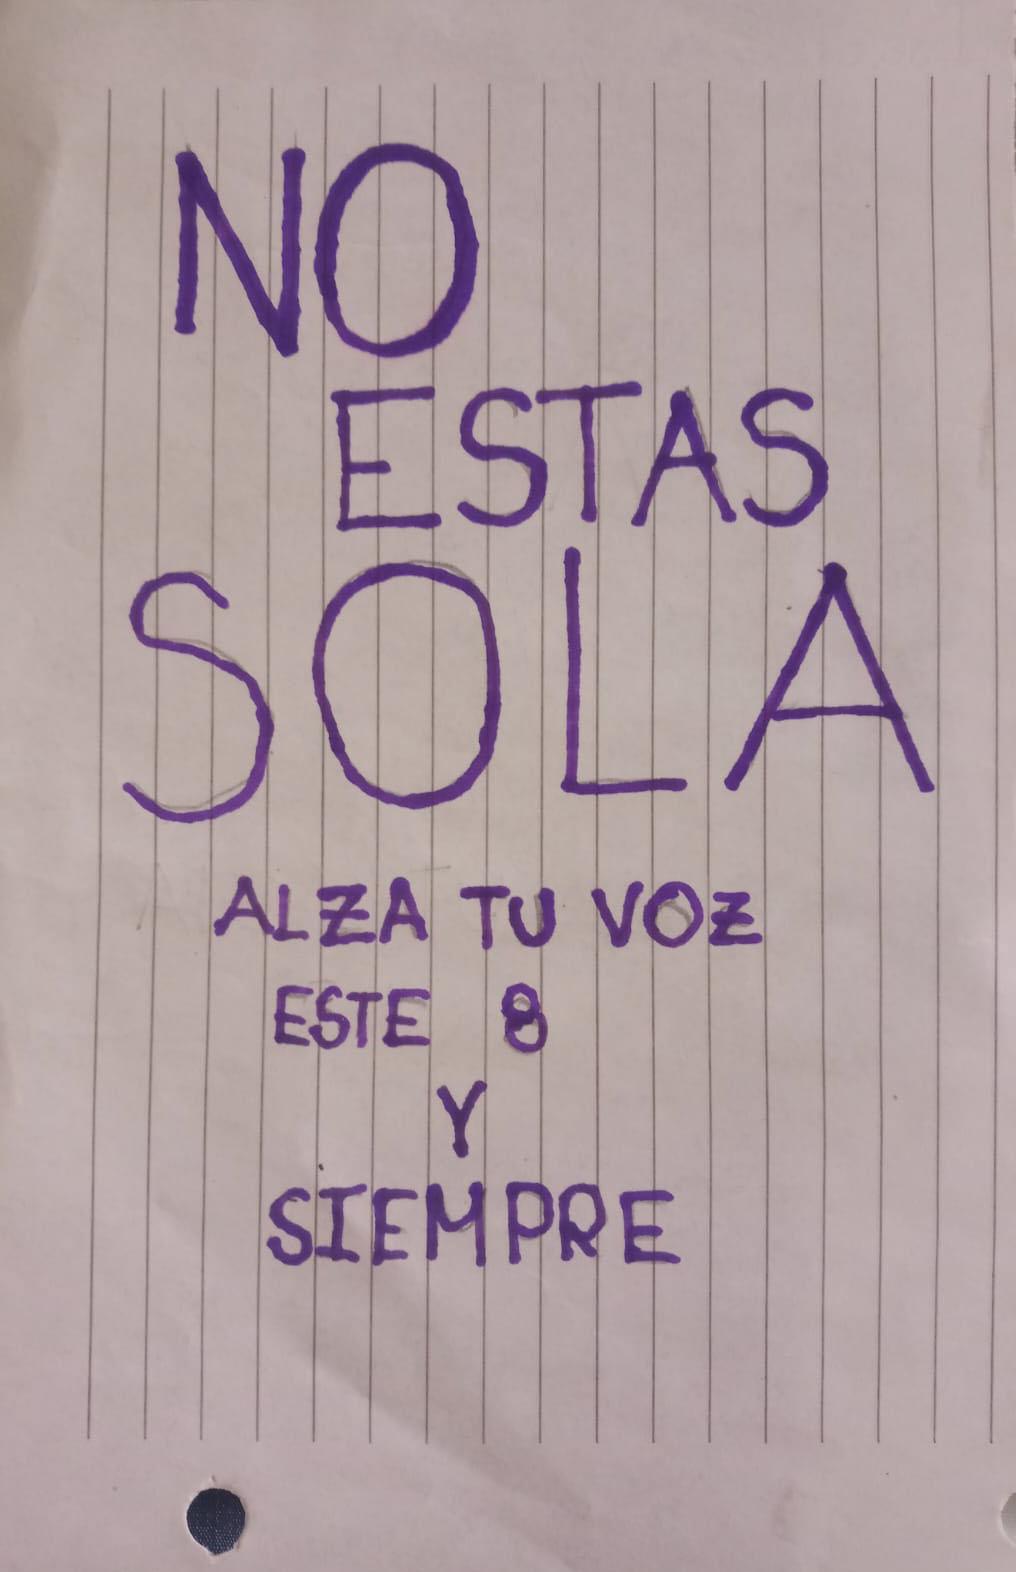 NO
ESTAS
SOLA
ALZA TU VOZ
ESTE 8
Y
SIEMPRE